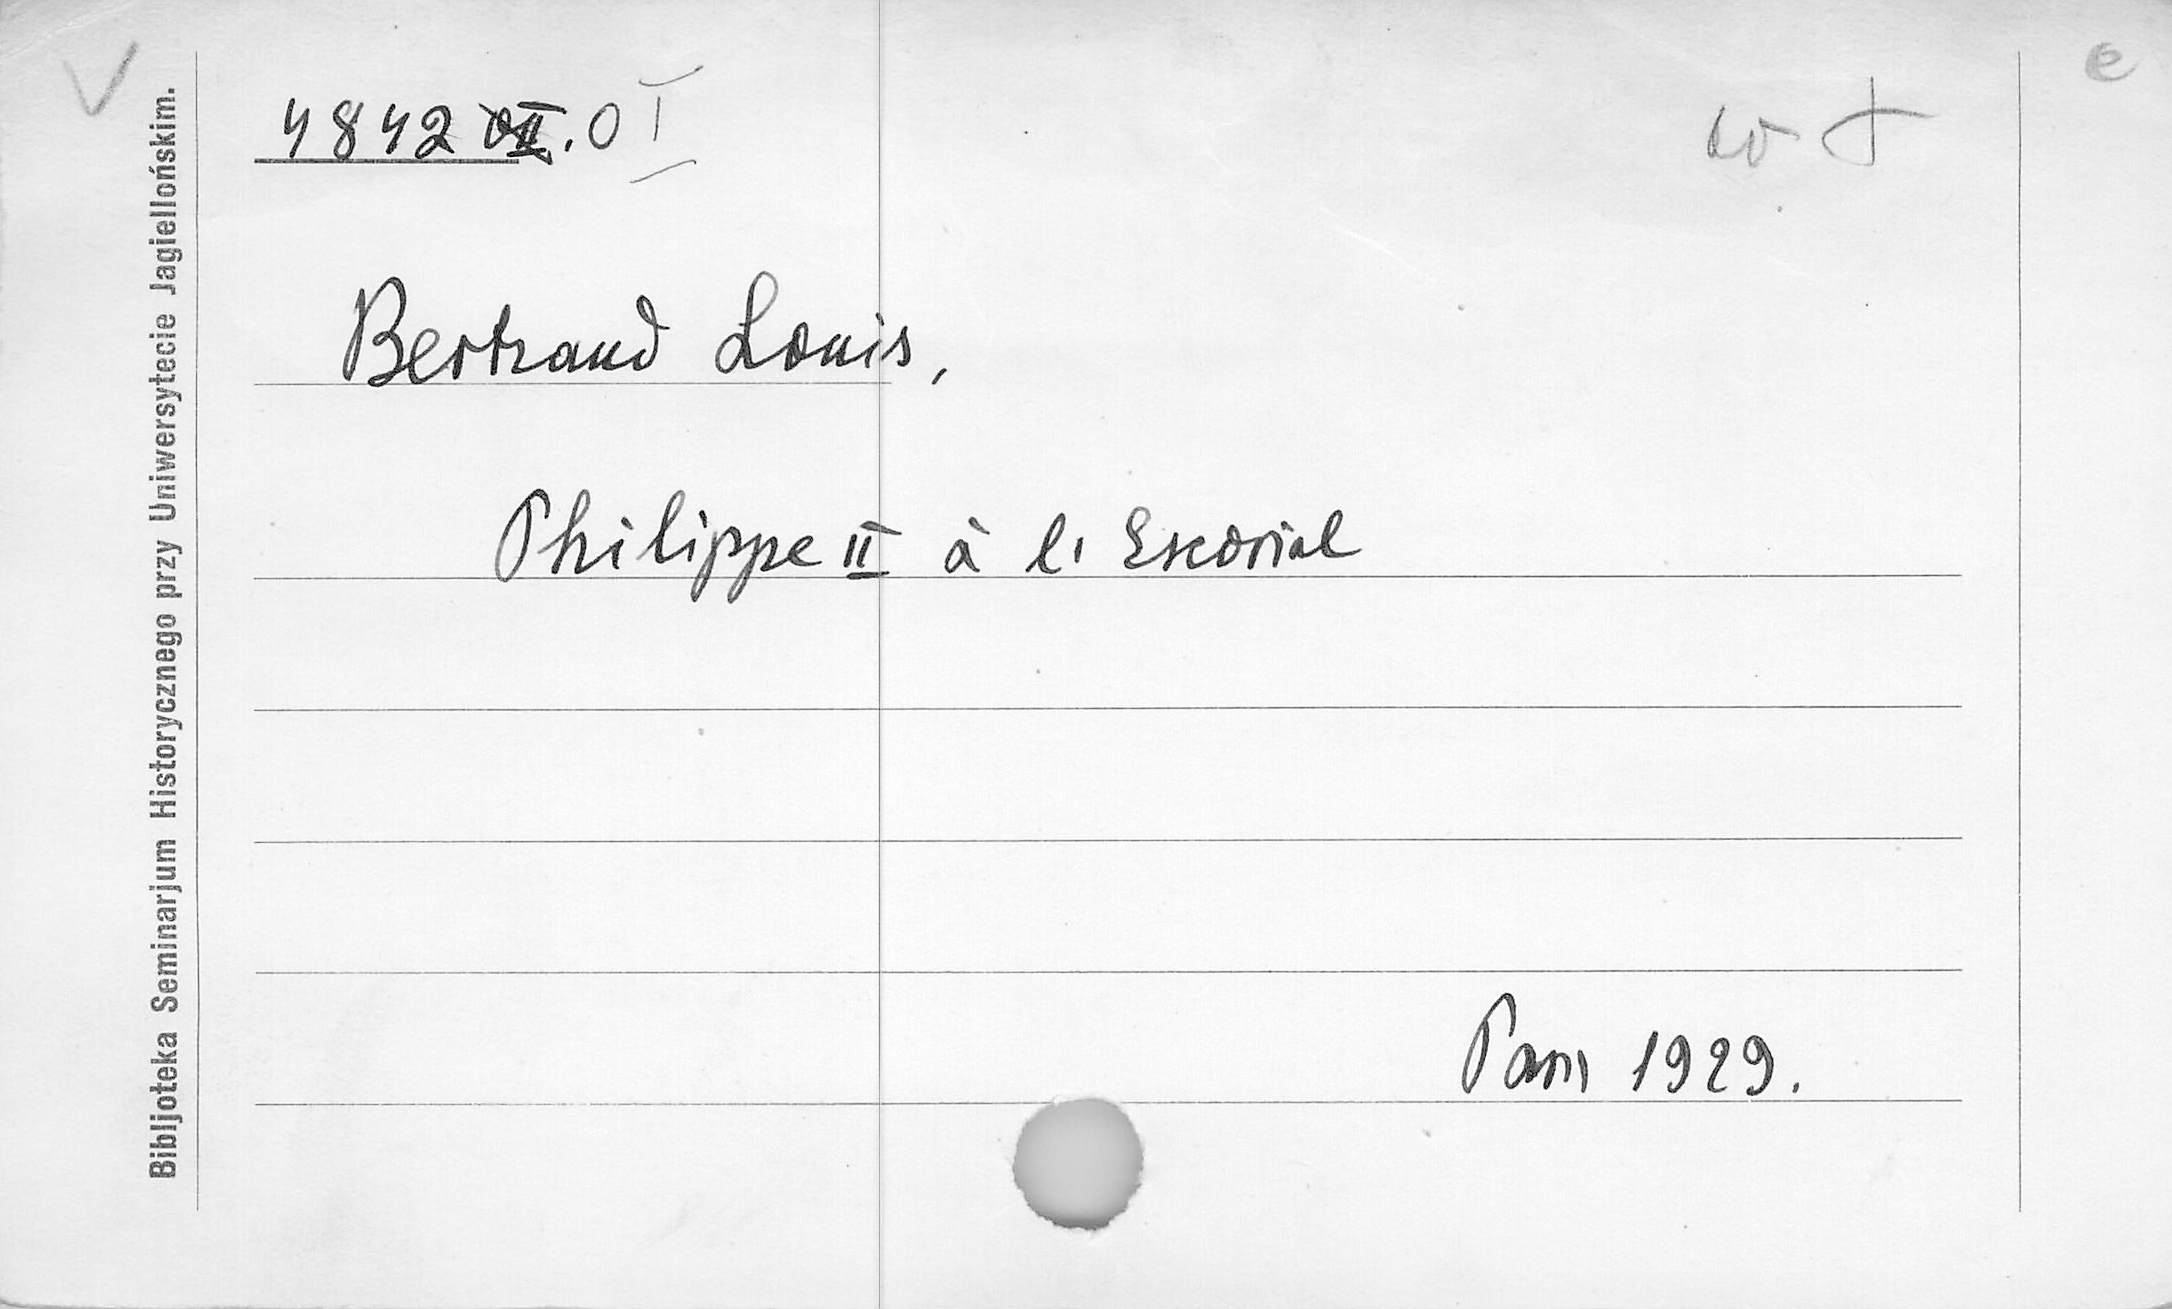 4842 . O I
Bertrand Louis,
Philippe II à l' Escorial
Paris 1929.
Bibljoteka Seminarjum Historycznego przy Uniwersytecie Jagiellońskim.
e